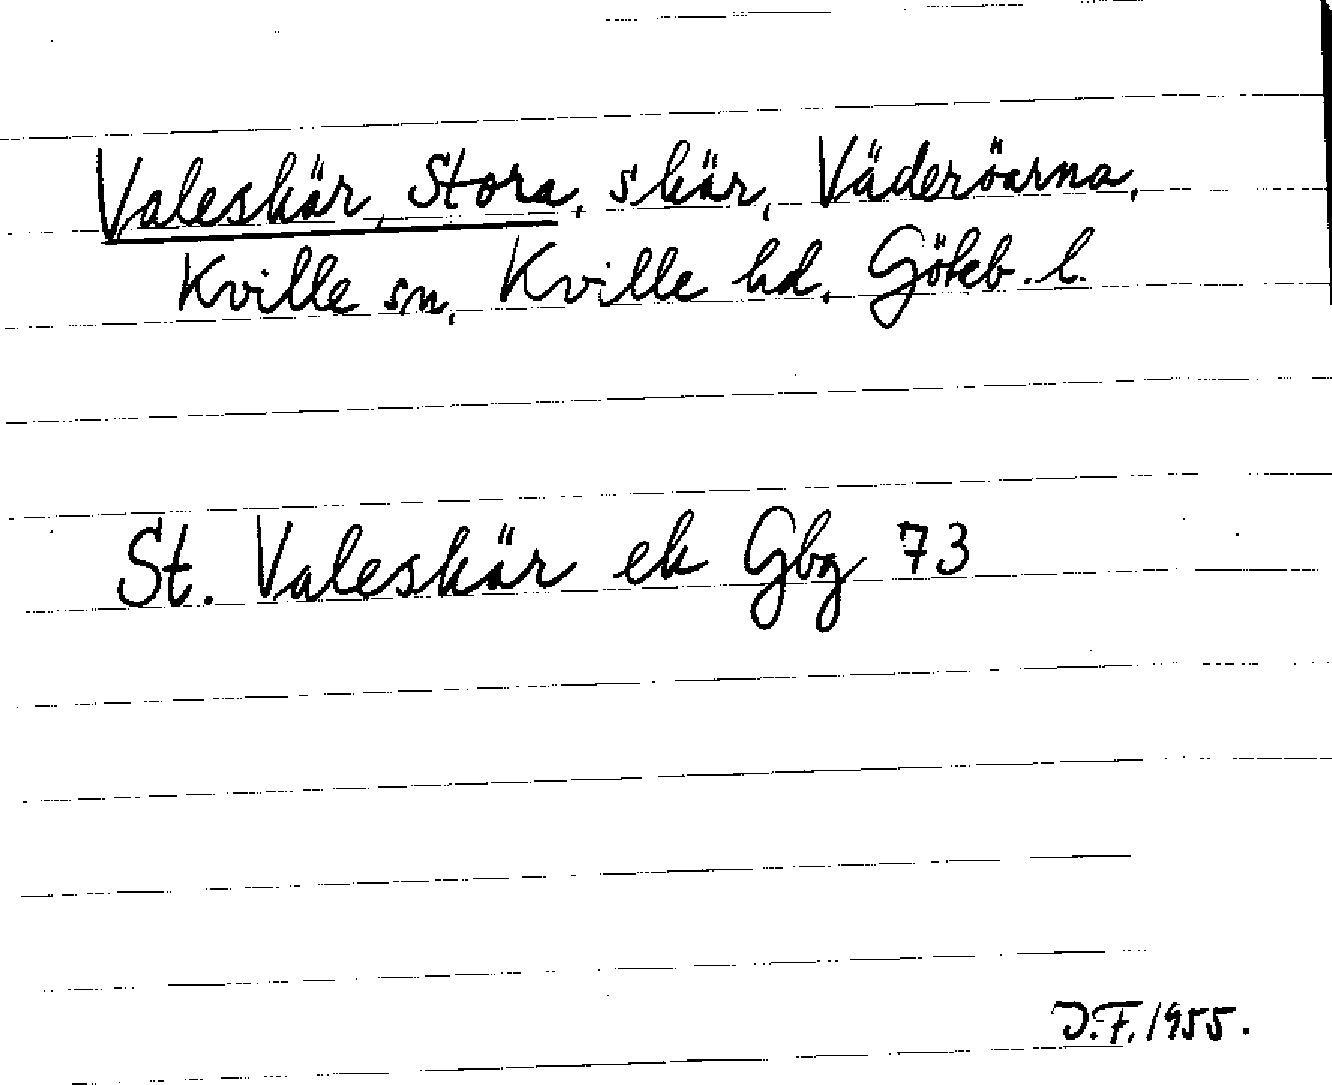 Valeskär, Stora, skär, Väderöarna,
Kville sn, Kville hd, Göteb. l.
St. Valeskär ek Gbg 73
D.F. 1955.